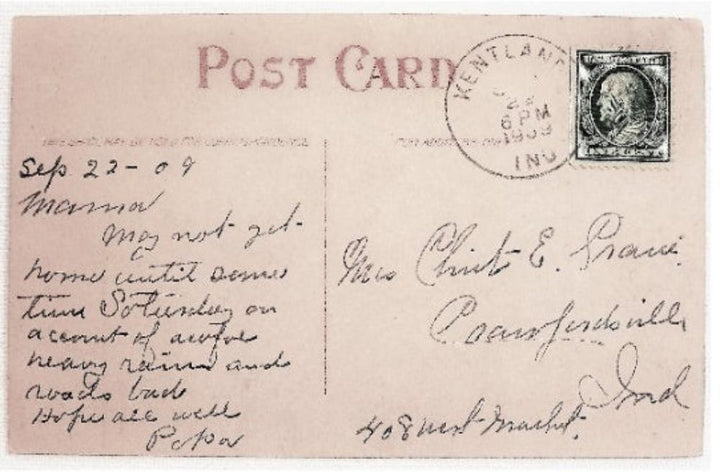 POST CARD
KENTLAND
6 PM
1909
IND
THIS SPACE MAY BE USED FOR CORRESPONDENCE
FOR ADDRESS ONLY
Sep. 22 - 09
Mama
May not get
home until some
time Saturday on
account of awful
heavy rains and
roads bad
Hope all well
Papa
Mrs Clint E.
Crawfordsville
Ind
West Market.